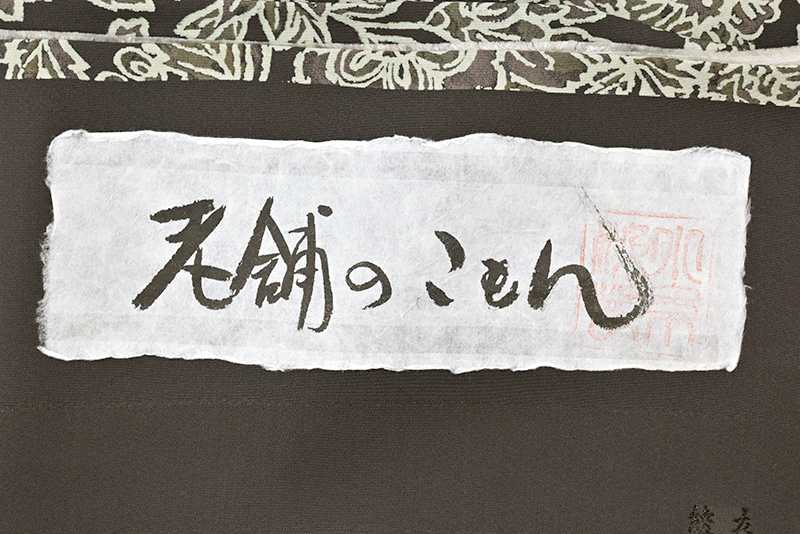 老舗のこもん